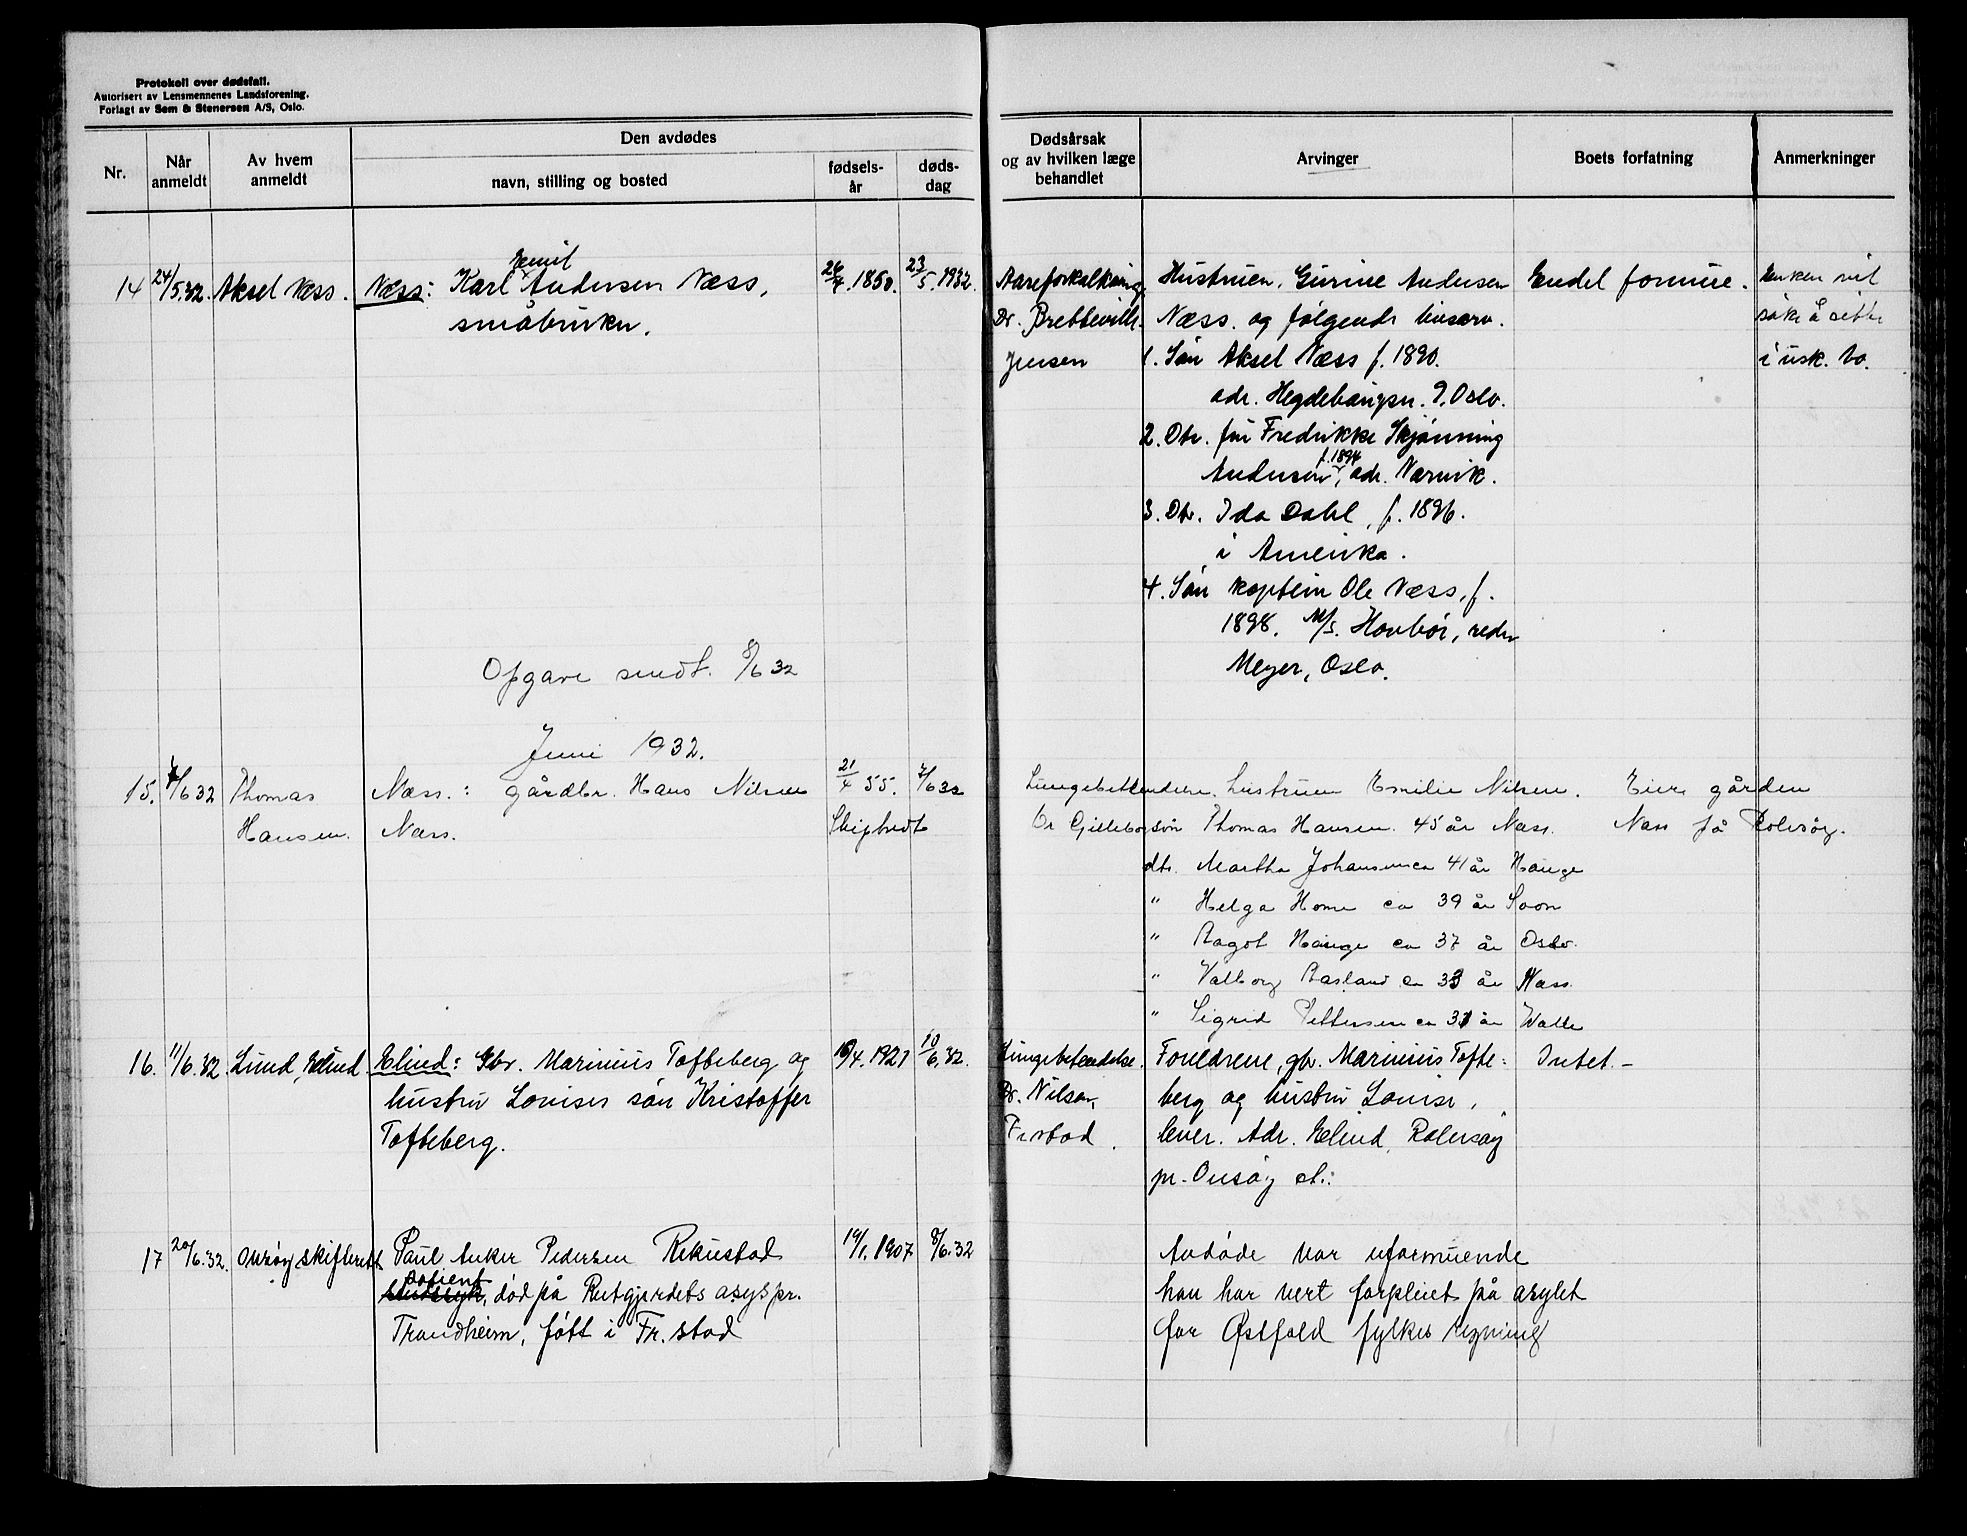 Protokoll over dødsfall.
Autorisert av Lensmennenes Landsforening.
Forlagt av Sem & Stenersen A/S, Oslo.
Nr.
Når anmeldt
Av hvem anmeldt
Den avdødes
navn, stilling og bosted
fødsels-år
døds-dag
Dødsårsak og av hvilken læge behandlet
Arvinger
Boets forfatning
Anmerkninger
14 24/5.32. Aksel Næss. Næss: Karl Emil Andersen Næss, 1850. 23/5.1932.
småbruker.
Aareforkalkning
Dr.
Jensen
Hustruen, Gurine Andersen
Næss. og følgende livsarv.
1. Søn Aksel Næss f. 1890.
adr. Hegdehaugsv. 9. Oslo.
2. Dtr. fru Fredrikke Skjønning
Andersen, f. 1894 adr. Narvik.
3. Dtr. Ida Dahl, f. 1896.
i Amerika.
4. Søn kaptein Ole Næss, f.
1898. M/S. Havbör, reder
Meyer, Oslo.
Endel formue.
Enken vil
søke å sitte
i usk. bo.
Opgave sendt. 8/6 32
Juni 1932.
15. 7/6 32 Thomas Hansen. Næss.: gårdbr. Hans Nilsen Næss. 21/4 55. 7/6 32
Lungebetendelse.
Dr
hustruen Emilie Nilsen.
søn Thomas Hansen. 45 år Næss.
dtr. Martha Johansen ca 41 år Hauge
" Helga Horne ca 39 år Soon
" Hauge ca 37 år Oslo.
" Valborg ca 33 år Næss
" Sigrid Pettersen ca 31 år Walle
Eier gården
Næss på Rolvsøy.
16. 11/6.32. Lund, Elind. Elind: Gbr. Marinius Tofteberg og 1921 10/6.32.
hustru Louises søn Kristoffer
Tofteberg.
Lungebetendelse.
Dr. Nilsen,
Fr.stad.
Foreldrene, gbr. Marinius Tofte-
berg og hustru Louise,
lever. Adr. Elind, Rolvsøy
pr. Onsøy st.:
Intet.-
17 20/6.32. Onsøy skifterett Paul Anker Pedersen 19/1.1907 8/6.32
patient, død på Rotgjerdets asyl pr.
Trondheim, født i Fr.stad
Avdøde var uformuende
han har vert forpleiet på asylet
for Østfold fylkes regning